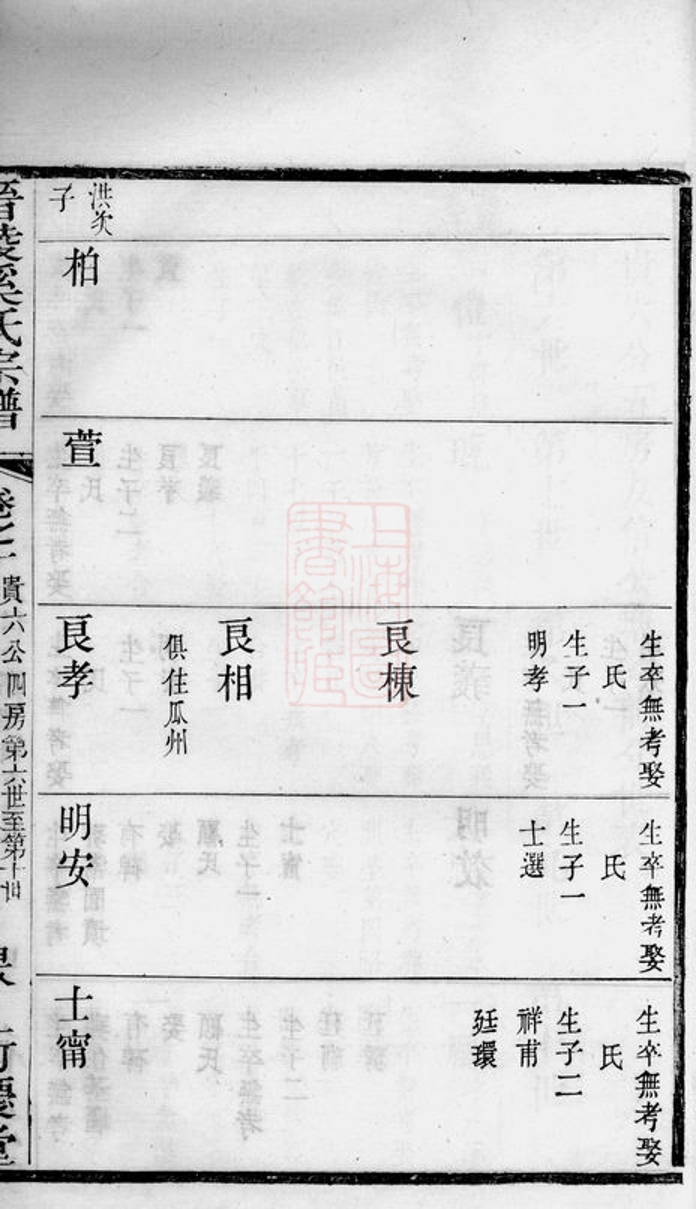 生卒無考娶
氏
生子一
明孝
良棟
良相
俱住瓜州
良孝
生卒無考娶
氏
生子一
士選
明安
生卒無考娶
氏
生子二
祥甫
廷環
士甯
萱
柏
洪次
子
晉陵奚氏宗譜
卷之二
貴六公四房第六世至第十世
衍慶堂
上海圖書館藏